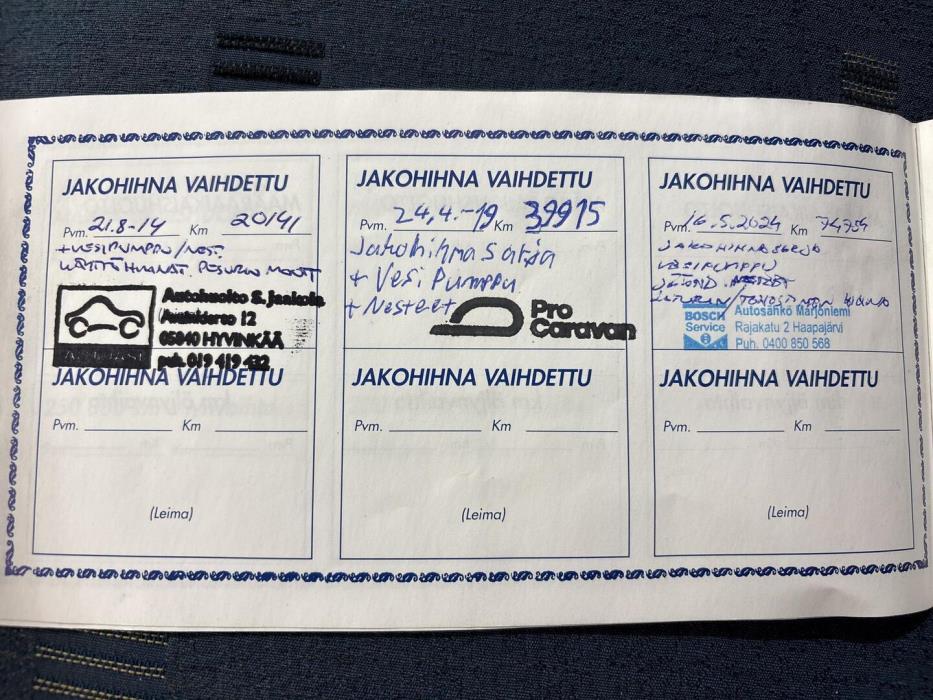 JAKOHIHNA VAIHDETTU
Pvm. 21.8-14 Km 20141
+VESIPUMPPU/NEST.
PESURIN MOOT
Autohuolto S. Jaakola
12
05840 HYVINKÄÄ
puh. 019 419 432
JAKOHIHNA VAIHDETTU
Pvm. 24,4.-19 Km 39915
Jakohihna sarja
+ Vesi Pumppu
+ Nesteet
Pro
Caravan
JAKOHIHNA VAIHDETTU
Pvm. 16.5.2024 Km 74754
JAKOHIHNASARJA
VESIPUMPPU
JÄÄHD. NESTEET
HIHNA
BOSCH
Service
Autosähkö Marjoniemi
Rajakatu 2 Haapajärvi
Puh. 0400 850 568
JAKOHIHNA VAIHDETTU
Pvm. Km
(Leima)
JAKOHIHNA VAIHDETTU
Pvm. Km
(Leima)
JAKOHIHNA VAIHDETTU
Pvm. Km
(Leima)